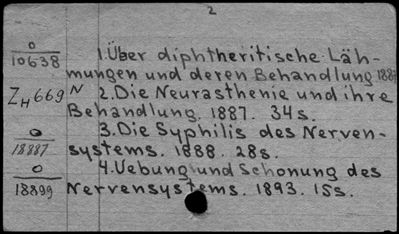 2
o
10638
1. Über diphtheritische Läh-
mungen und deren Behandlung 1887
ZH 669 N 2. Die Neurasthenie und ihre
Behandlung. 1887. 34s.
o
18887
3. Die Syphilis des Nerven-
systems. 1888. 28s.
o
18899
4. Uebung und Schonung des
Nervensystems. 1893. 15s.